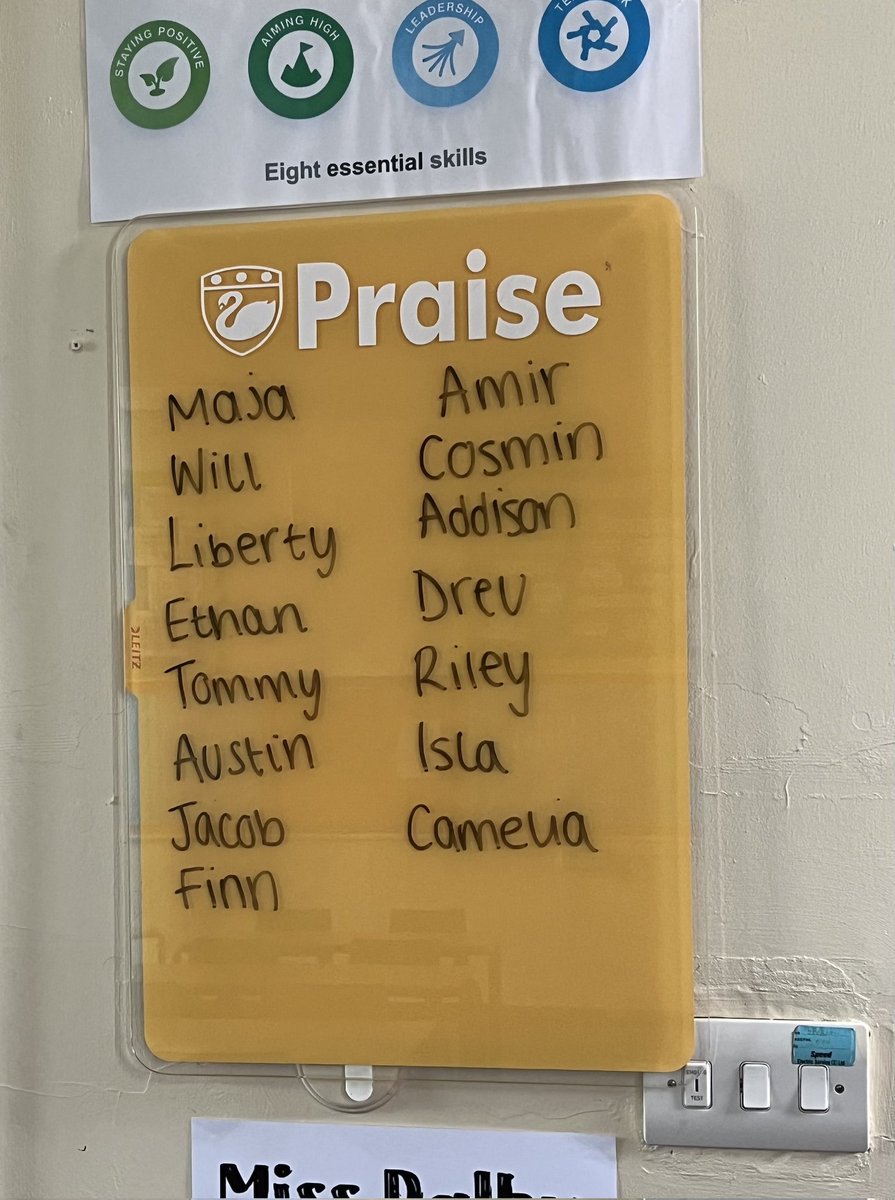 STAYING POSITIVE
AIMING HIGH
LEADERSHIP
Eight essential skills
Praise
Maja
Will
Liberty
Ethan
Tommy
Austin
Jacob
Finn
Amir
Cosmin
Addison
Drew
Riley
Isla
Camelia
LEITZ
TEST
Speed
Miss